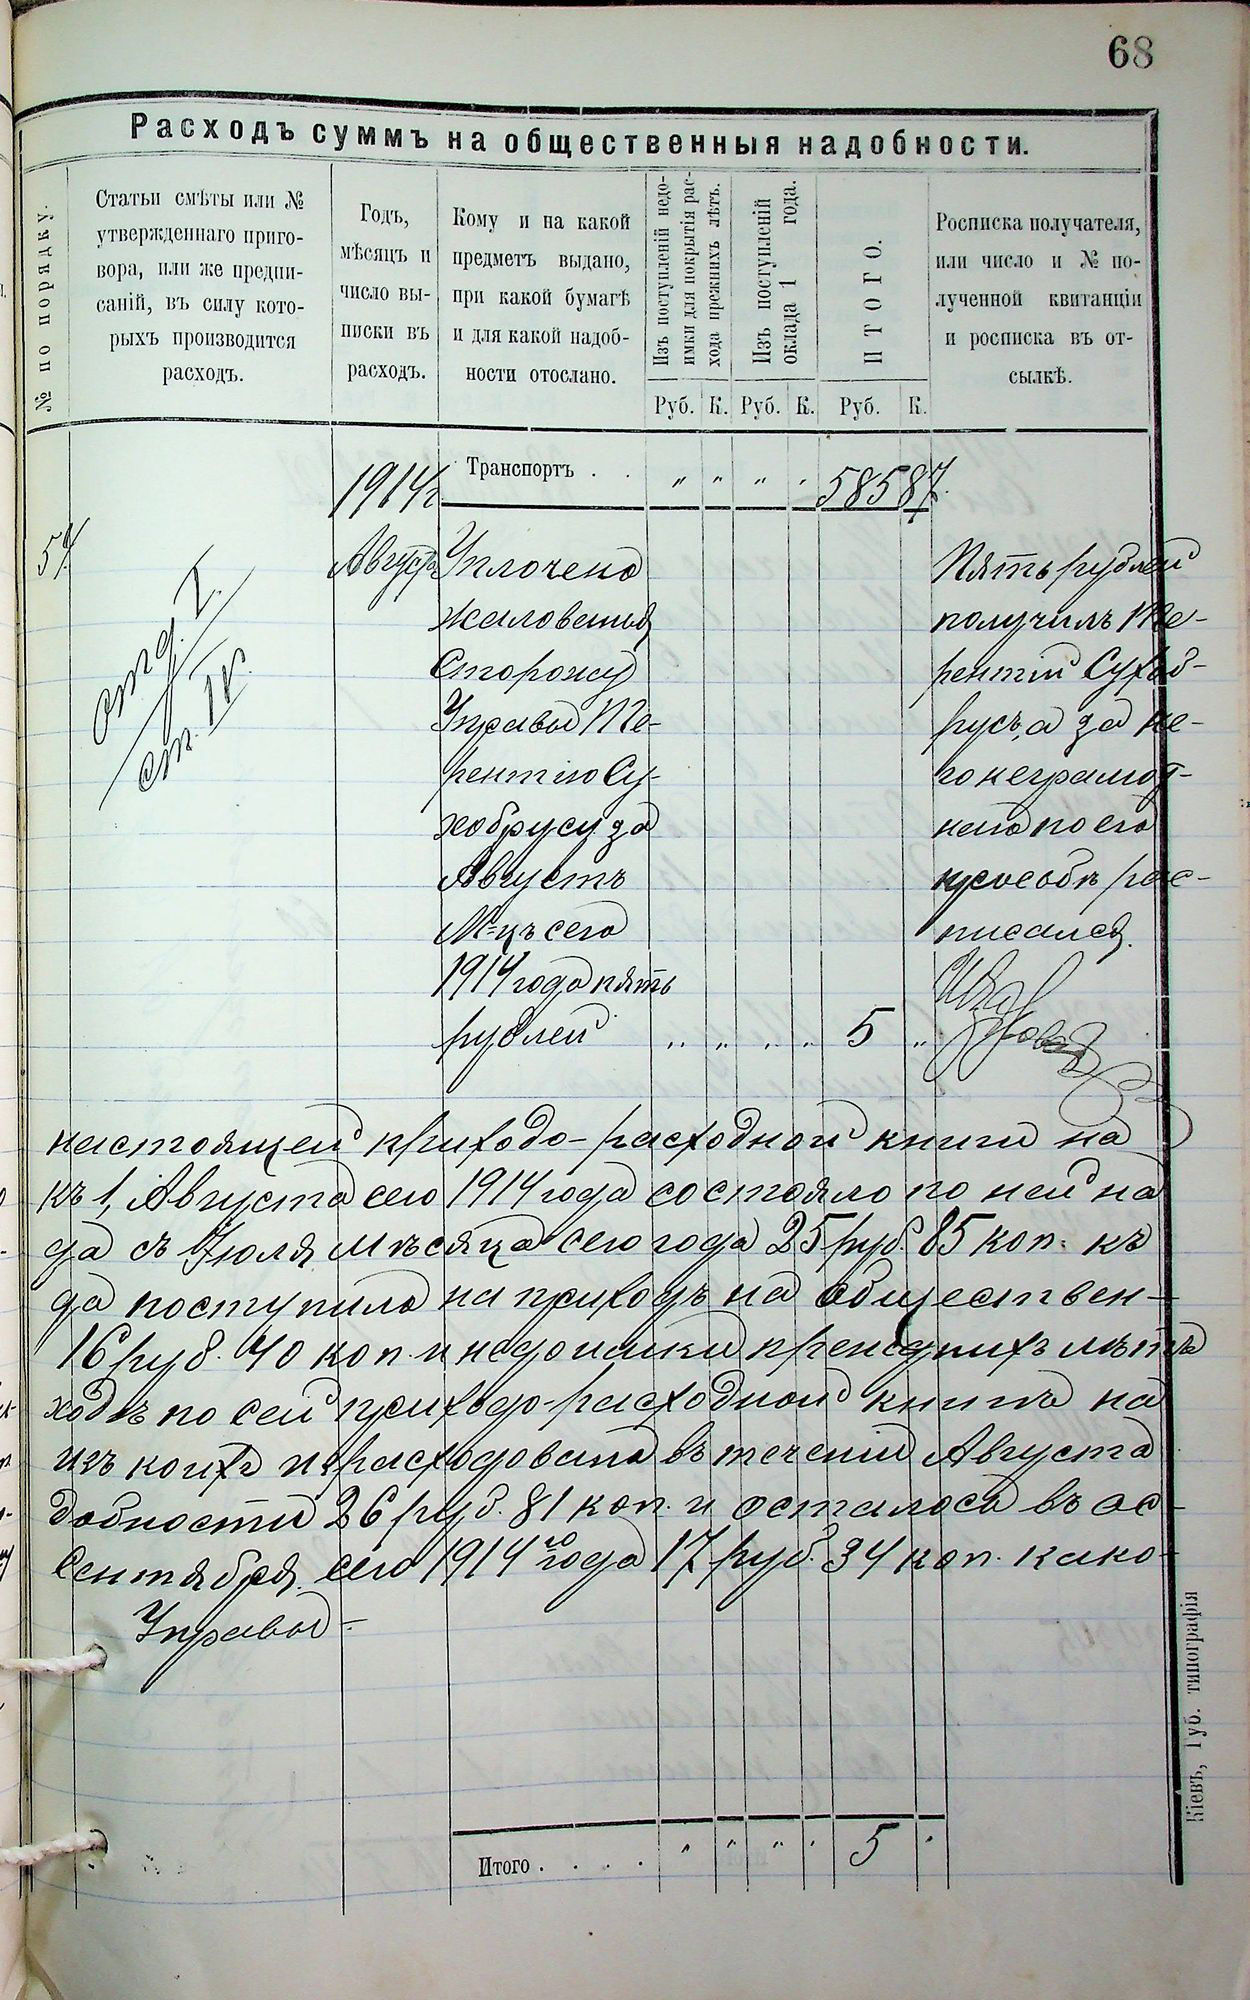 68
Расходъ суммъ на общественныя надобности.
№ по порядку.
Статьи смѣты или №
утвержденнаго приго-
вора, или же предпи-
саній, въ силу кото-
рыхъ производится
расходъ.
Годъ,
мѣсяцъ и
число вы-
писки въ
расходъ.
Кому и на какой
предметъ выдано,
при какой бумагѣ
и для какой надоб-
ности отослано.
Изъ поступленій недо-
имки для покрытія рас-
хода прежнихъ лѣтъ.
Изъ поступленій
оклада 1 года.
ИТОГО.
Росписка получателя,
или число и № по-
лученной квитанціи
и росписка въ от-
сылкѣ.
Руб. К. Руб. К. Руб. К.
1914 г Транспортъ . . " " " " 585 87
54
отд. I.
ст. IV.
Августа
Уплочено
жалованья
Сторожу
Управы Те-
рентію Су-
хобрусу за
Августъ
М-цъ сего
1914 года пять
рублей " " " " 5 "
Пять рублей
получилъ Те-
рентій Сухоб-
русъ, а за не-
го неграмот-
наго по его
просьбѣ рас-
писался
настоящей приходо-расходной книги на
къ 1, Августа сего 1914 года состояло по ней на
да съ Іюля мѣсяца сего года 25 руб. 85 коп. къ
да поступило на приходъ на обществен-
16 руб. 40 коп. и недоимки прежднихъ лѣтъ
ходъ по сей приходо-расходной книгѣ на
изъ коихъ израсходовано въ теченіи Августа
добности 26 руб. 81 коп. и осталось въ ос-
Сентября сего 1914 го года 17 руб. 34 коп. како-
Управы -
Итого . . . . " " " " 5 "
Кіевъ, Губ. типографія